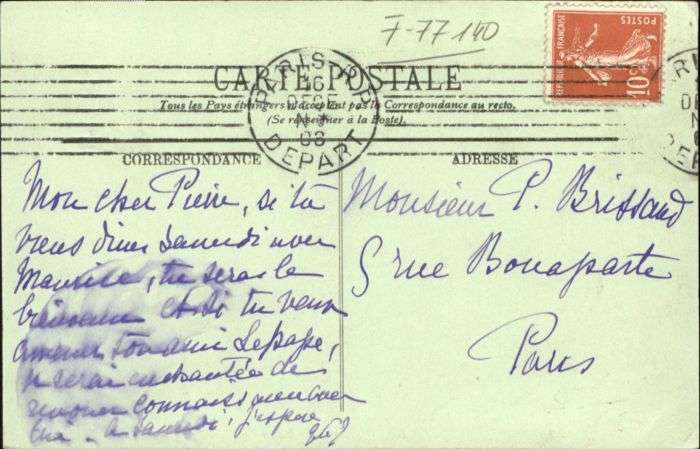 7-77 140
CARTE POSTALE
Tous les Pays étrangers n'acceptent pas la Correspondance au recto.
(Se renseigner à la Poste).
PARIS
DEPART
08
REPUBLIQUE FRANÇAISE
POSTES
10c
CORRESPONDANCE
ADRESSE
Mon cher Pierre, si tu
viens diner Samedi avec
Maurice, tu seras le
bienvenu et si tu veux
amener ton ami Lepape,
je serai enchantée de
renouer connaissance avec
lui. a samedi, j'espère
Monsieur P. Brissaud
5 rue Bonaparte
Paris